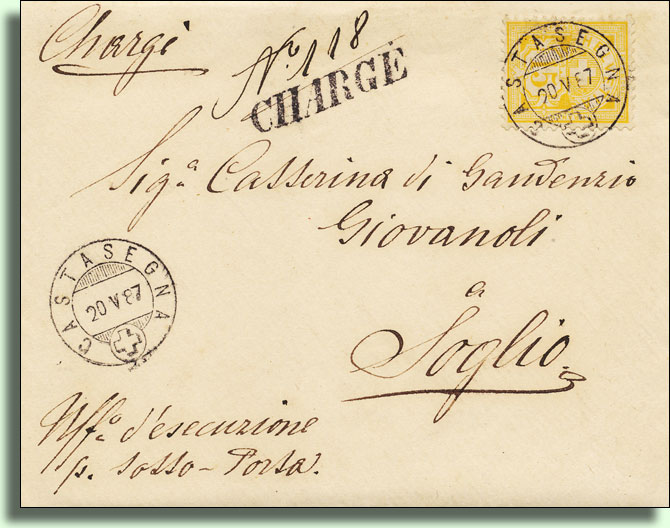 Chargé
No. 118
CHARGÉ
CASTASEGNA
20 V 87
Sigª Catterina di Gaudenzio
Giovanoli
a
Soglio
CASTASEGNA
20 V 87
Uffº d'esecuzione
p. Sotto-Porta.